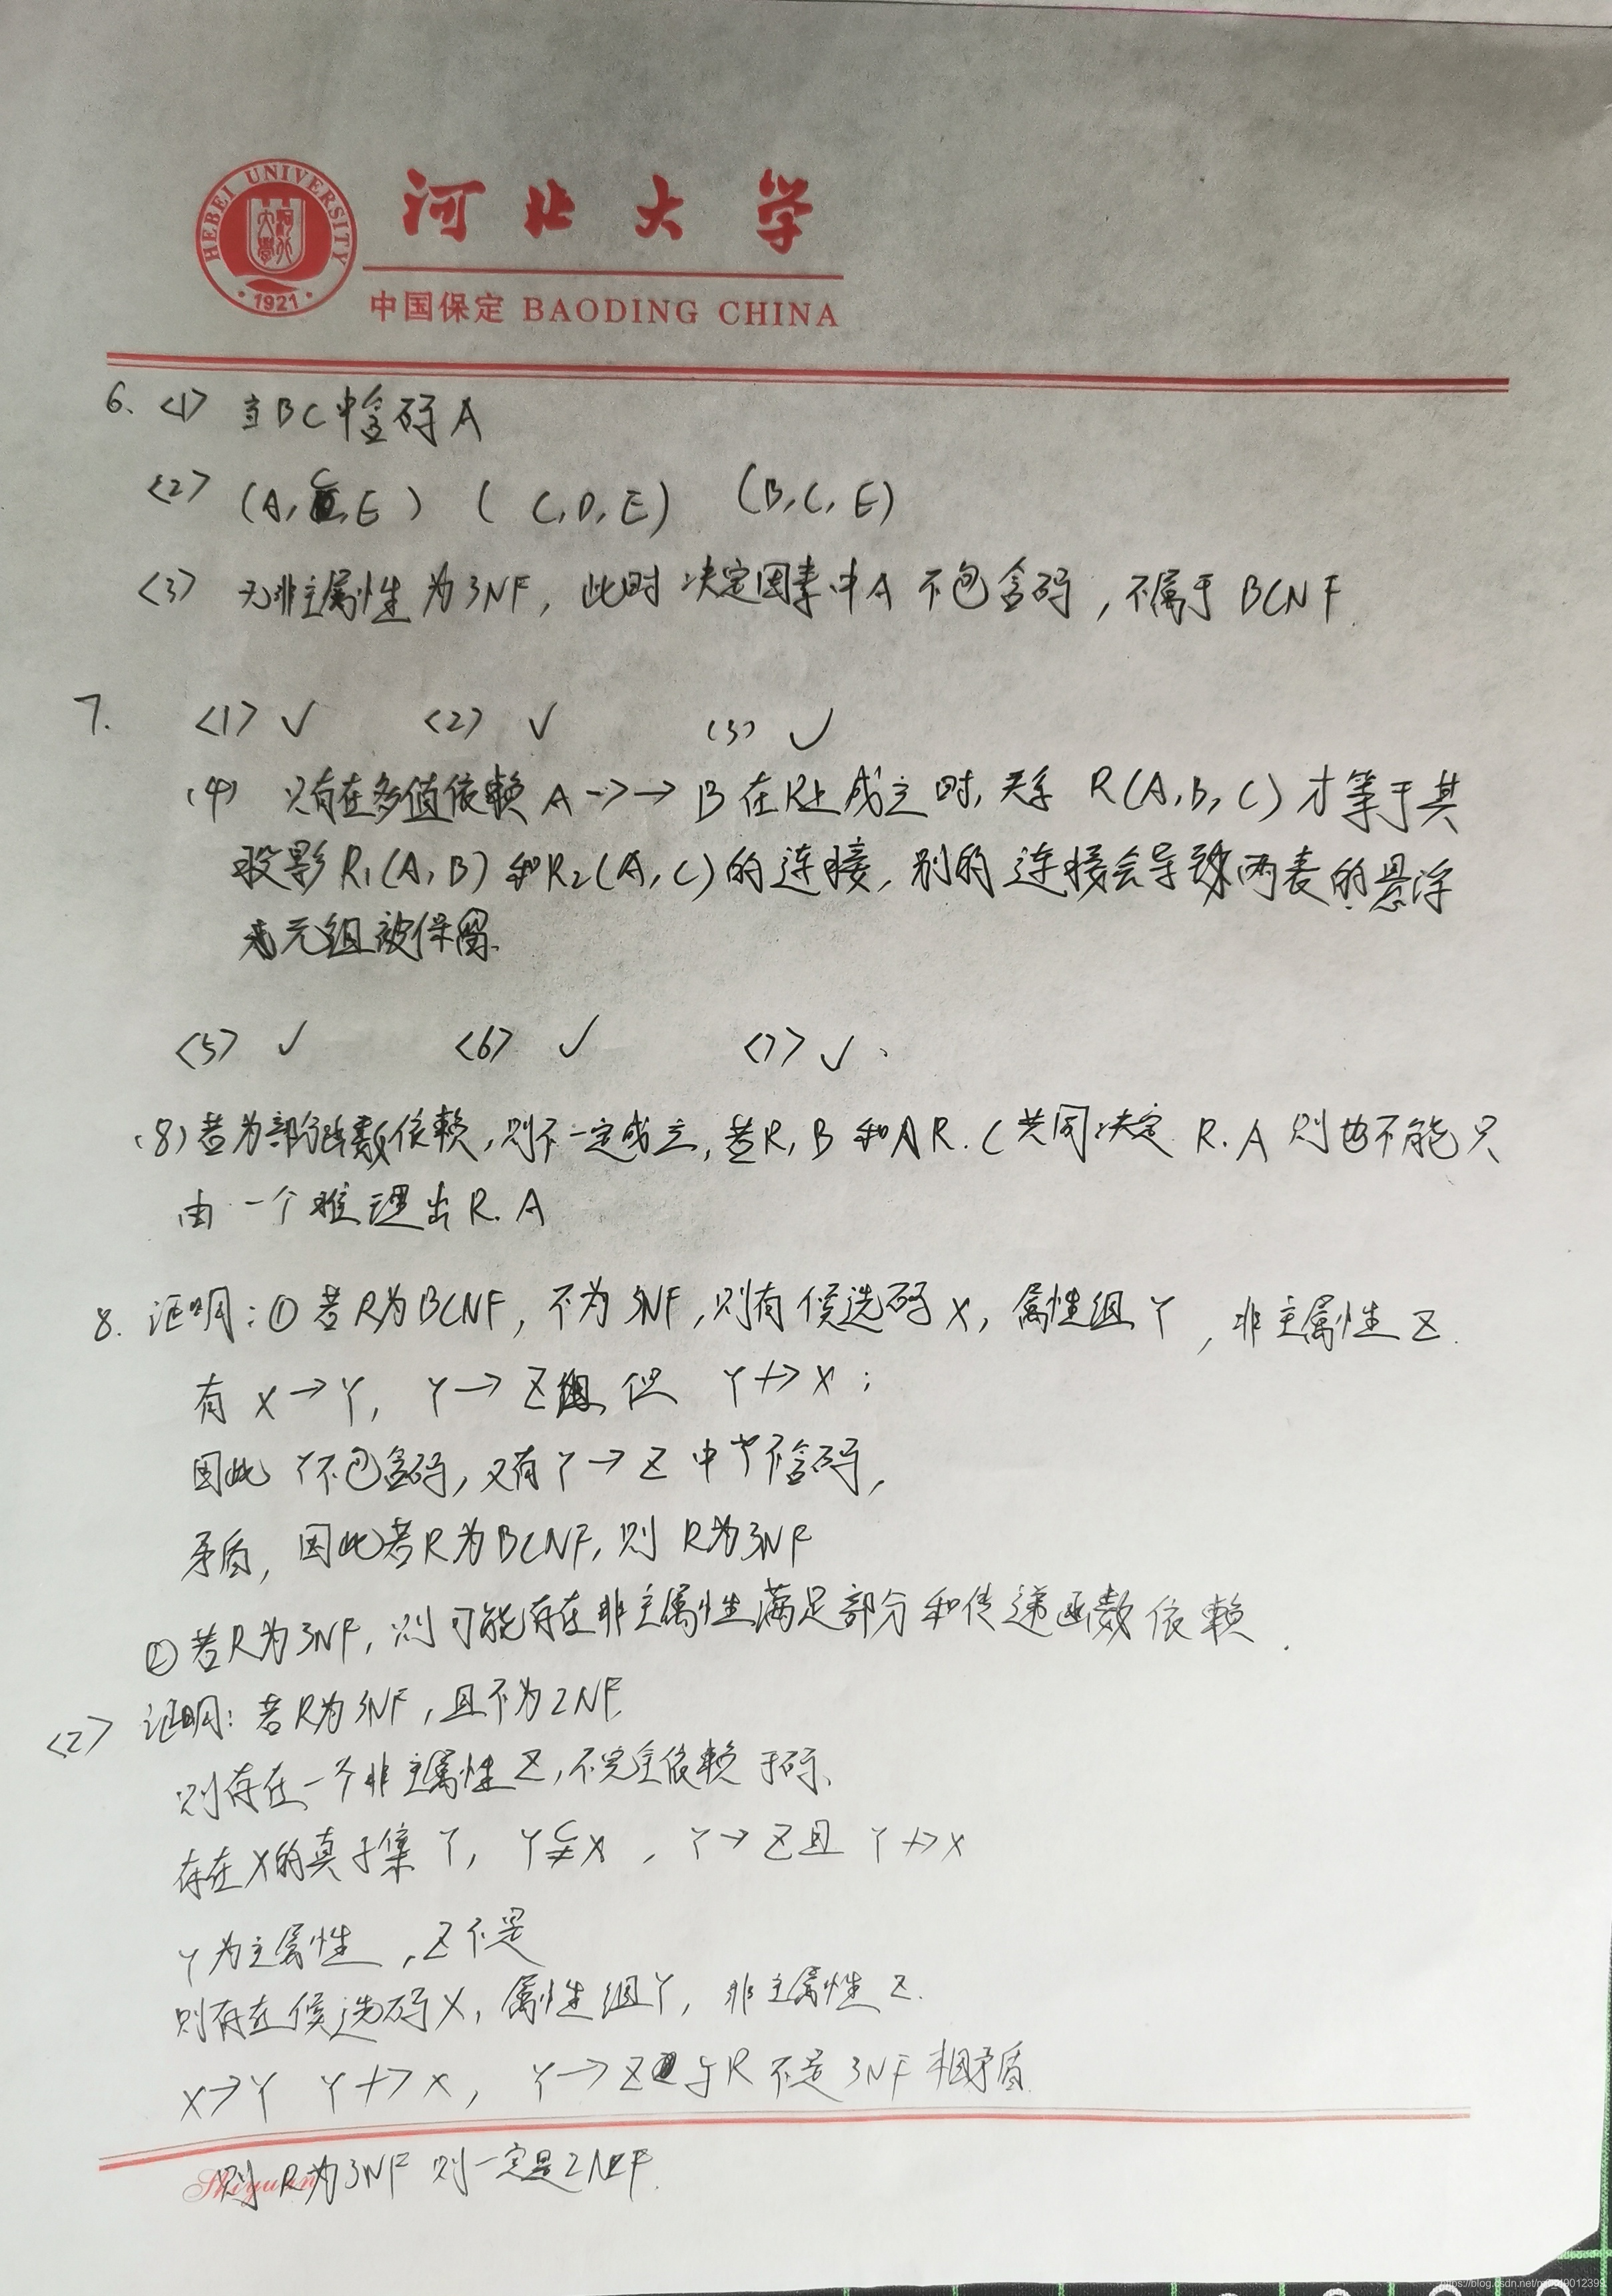 HEBEI UNIVERSITY
1921
河北大学
中国保定 BAODING CHINA
6. <1> 当BC中含码A
<2> (A, C, E) ( C, D, E) (B, C, E)
<3> 无非主属性为3NF, 此时决定因素中A不包含码, 不属于BCNF.
7. <1> √ <2> √ (3) √
(4) 只有在多值依赖A→→B在R上成立时, 关系 R(A, B, C) 才等于其
投影R₁(A, B) 和R₂(A, C)的连接, 别的连接会导致两表的悬浮
元组被保留.
<5> √ <6> √ <7> √ 、
(8) 若为部分函数依赖, 则不一定成立, 若R, B 和 R. C 共同决定 R. A 则也不能只
由一个推理出R. A
8. 证明: ① 若R为BCNF, 不为3NF, 则有候选码X, 属性组Y, 非主属性Z.
有 X→Y, Y→Z 但 Y↛X ;
因此 Y不包含码, 又有Y→Z 中Y不含码,
矛盾, 因此若R为BCNF, 则 R为3NF
② 若R为3NF, 则可能存在非主属性满足部分和传递函数依赖.
<2> 证明: 若R为3NF, 且不为2NF.
则存在一个非主属性Z, 不完全依赖于码、
存在X的真子集Y, Y⊊X, Y→Z且 Y↛X
Y为主属性, Z不是
则存在候选码X, 属性组Y, 非主属性Z.
X→Y Y↛X, Y→Z 与R不是3NF相矛盾.
Shiyuan
则R为3NF 则一定是2NF.